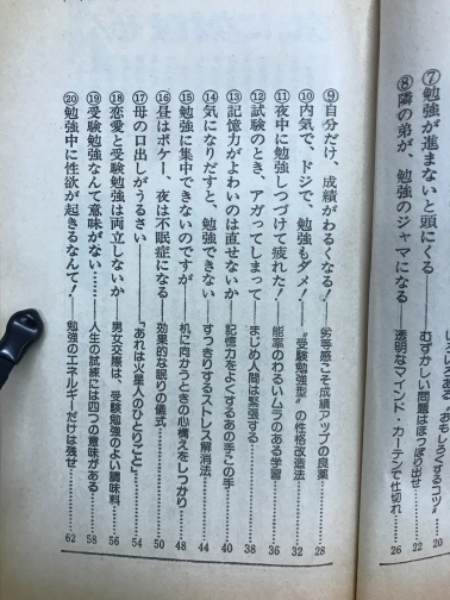 いろいろある〝おもしろくするコツ〟 20
⑦勉強が進まないと頭にくる――むずかしい問題はほっぽり出せ……22
⑧隣の弟が、勉強のジャマになる――透明なマインド・カーテンで仕切れ……26
⑨自分だけ、成績がわるくなる！――劣等感こそ成績アップの良薬……28
⑩内気で、ドジで、勉強もダメ！――〝受験勉強型〟の性格改造法……32
⑪夜中に勉強しつづけて疲れた！――能率のわるいムラのある学習……36
⑫試験のとき、アガってしまって――まじめ人間は緊張する……38
⑬記憶力がよわいのは直せないか――記憶力をよくするあの手この手……40
⑭気になりだすと、勉強できない――すっきりするストレス解消法……44
⑮勉強に集中できないのですが――机に向かうときの心構えをしっかり……48
⑯昼はボケー、夜は不眠症になる――効果的な眠りの儀式……50
⑰母の口出しがうるさい――「あれは火星人のひとりごと」……54
⑱恋愛と受験勉強は両立しないか――男女交際は、受験勉強のよい調味料……56
⑲受験勉強なんて意味がない……――人生の試練には四つの意味がある……58
⑳勉強中に性欲が起きるなんて！――勉強のエネルギーだけは残せ……62